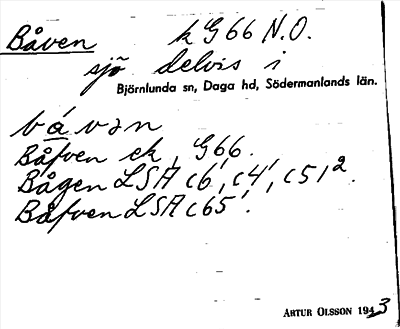 Båven k G66 N.O.
sjö delvis i
Björnlunda sn, Daga hd, Södermanlands län.
bǻvən
Båfven ek, G66.
Bågen LSA c6', c4', c51².
Båfven LSA c65'.
ARTUR OLSSON 1943